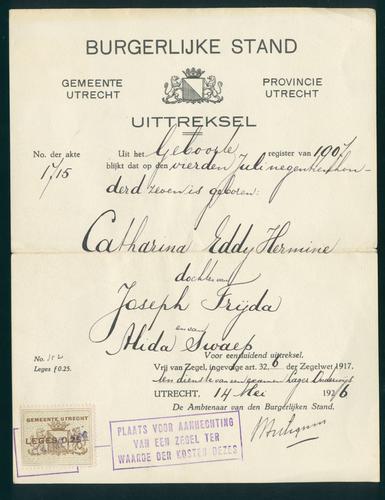 BURGERLIJKE STAND
GEMEENTE UTRECHT
PROVINCIE UTRECHT
UITTREKSEL
No. der akte 1715
Uit het Geboorte register van 1907
blijkt dat op den vierden Juli negentienhon-
derd zeven is geboren:
Catharina Eddy Hermine
dochter van
Joseph Frijda
en van
Alida Swaep
Voor eensluidend uittreksel.
No. 152
Leges f 0.25.
Vrij van Zegel, ingevolge art. 32, 6 der Zegelwet 1917.
ten dienste van een examen Lager Onderwijs
UTRECHT, 14 Mei 1926
De Ambtenaar van den Burgerlijken Stand,
GEMEENTE UTRECHT
LEGES 0.25
PLAATS VOOR AANHECHTING
VAN EEN ZEGEL TER
WAARDE DER KOSTEN DEZES